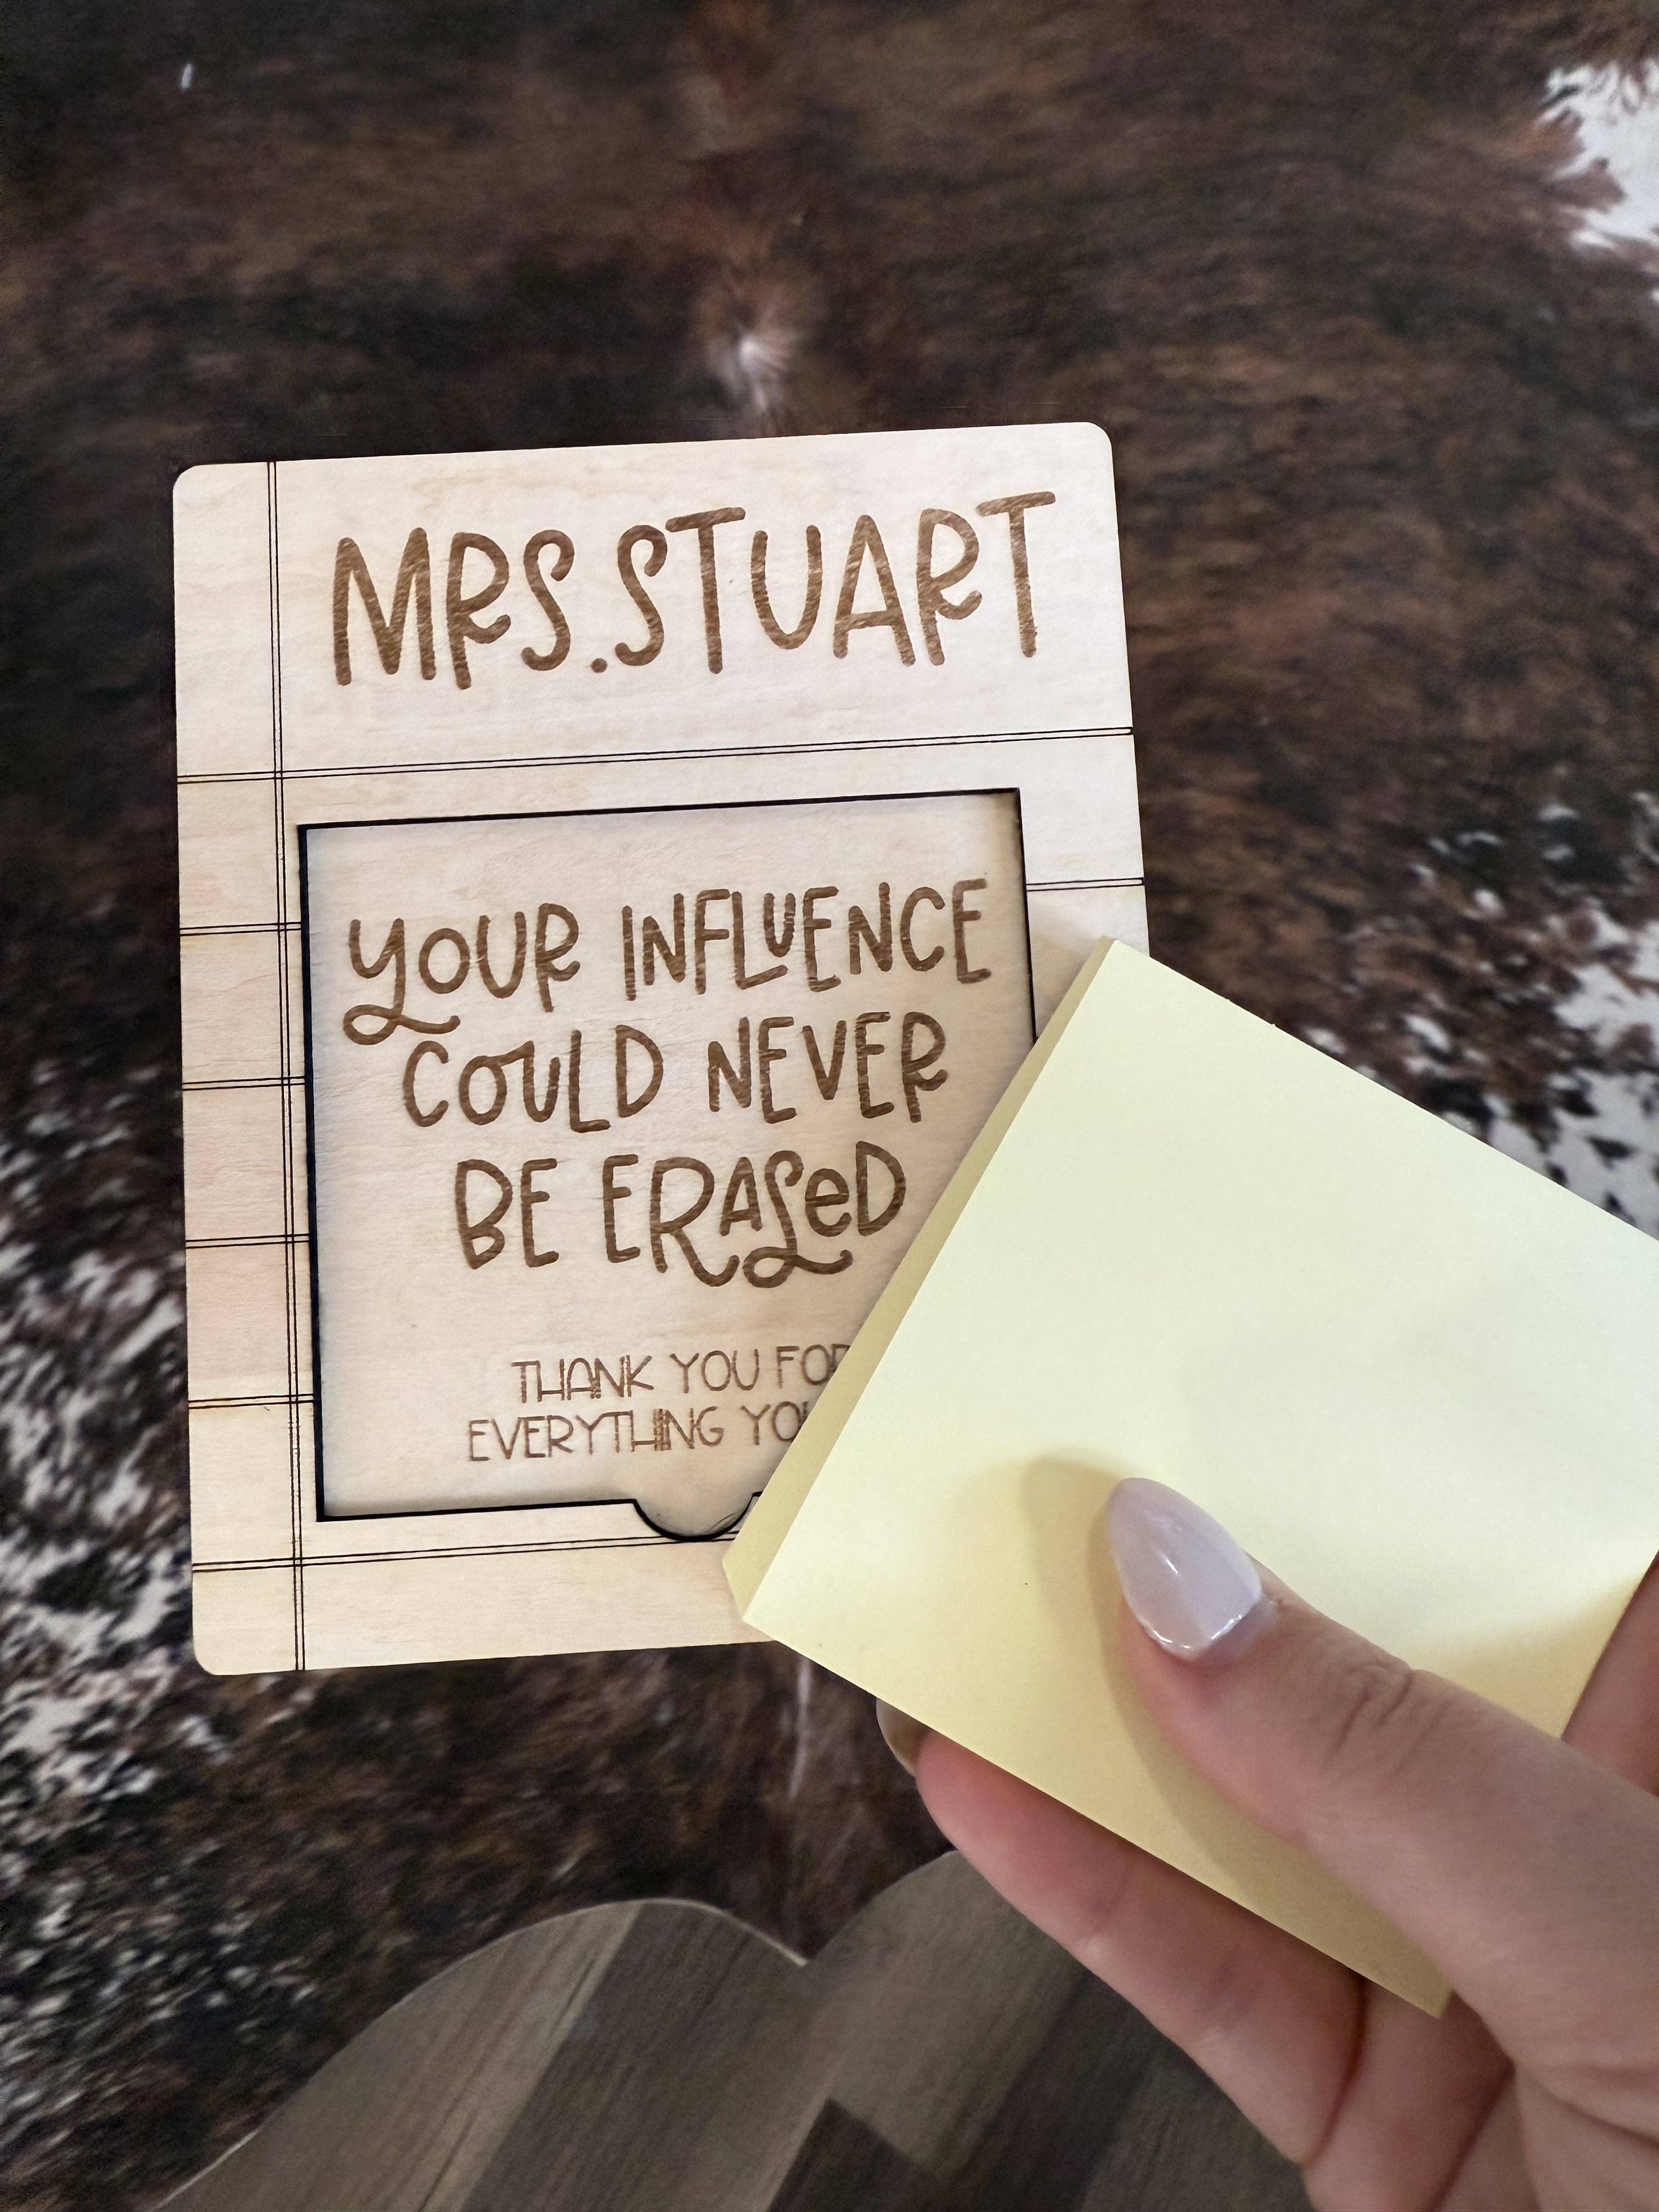 MRS. STUART
YOUR INFLUENCE
COULD NEVER
BE ERASED
THANK YOU FOR
EVERYTHING